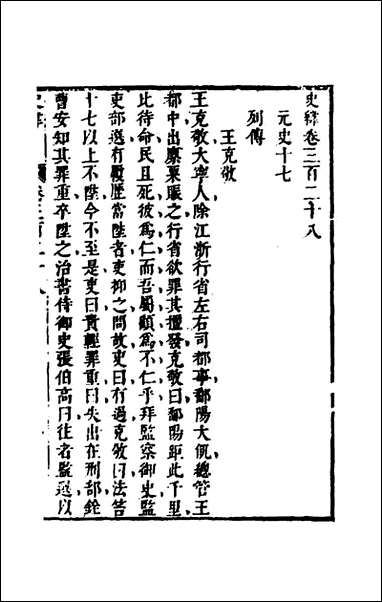 史緯卷三百二十八
元史十七
列傳
王克敬
王克敬大寧人除江浙行省左右司都事鄱陽大饑總管王
都中出廩粟賑之行省欲罪其擅發克敬曰鄱陽距此千里
比待命民且死彼為仁而吾屬顧為不仁乎拜監察御史監
吏部選有履歷當陞者吏抑之問故吏曰有過克敬曰法笞
十七以上不陞今不至是吏曰責輕罪重曰失出在刑部銓
曹安知其罪重卒陞之治書侍御史張伯高曰往者監選以